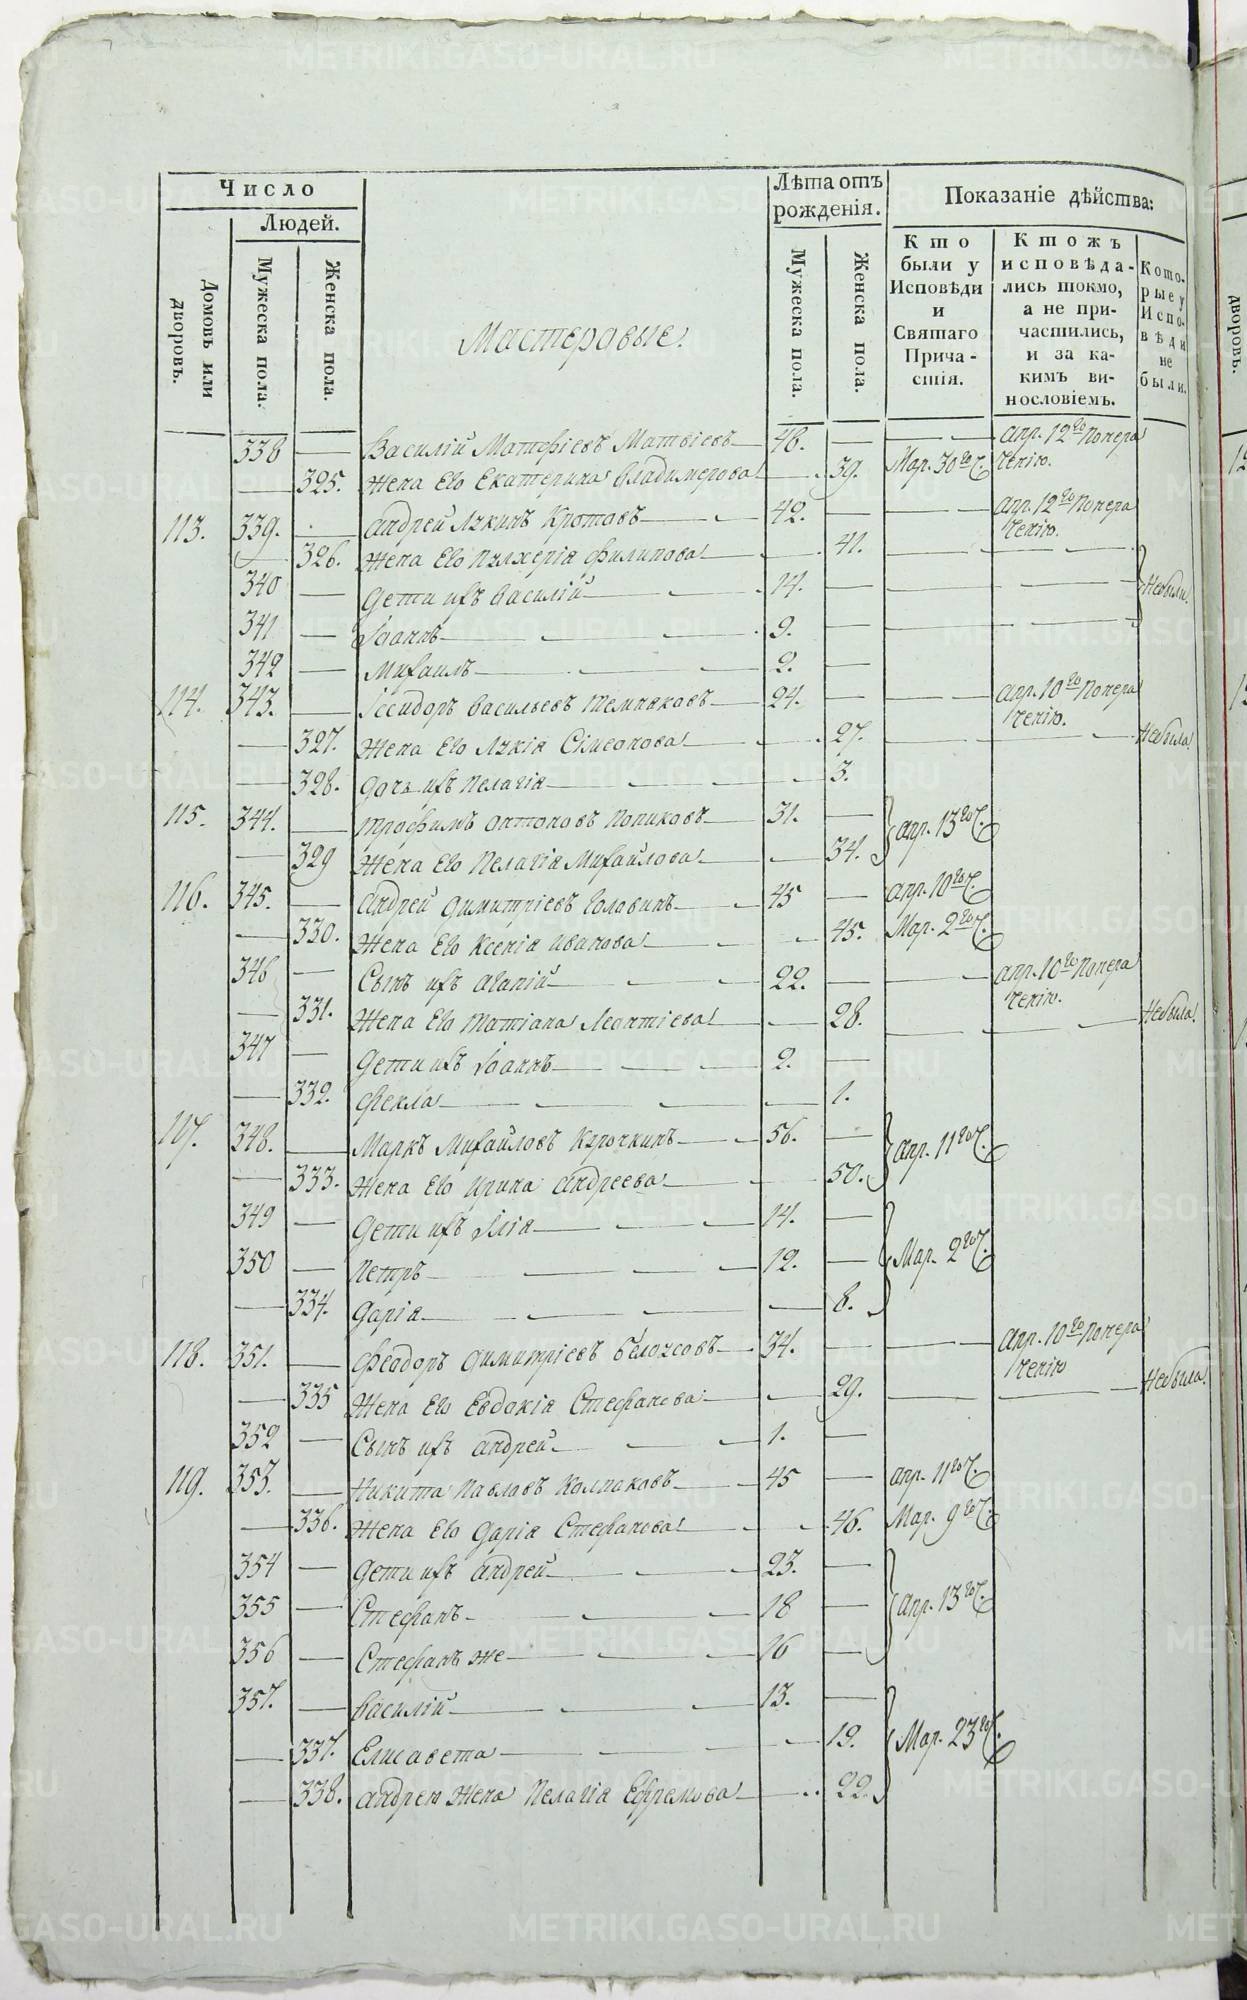 Число
Людей.
Домовъ или дворовъ.
Мужеска пола.
Женска пола.
Мастеровые.
Лѣта отъ рожденія.
Мужеска пола.
Женска пола.
Показаніе дѣйства:
Кто были у Исповѣди и Святаго Причастія.
Ктожъ исповѣда-лись токмо, а не при-частились, и за ка-кимъ ви-нословіемъ.
Кото-рые у Испо-вѣди не были.
338 — Василій Матфіевъ Матвіевъ — 48. — — апр. 12го Попера
— 325. Жена Его Екатерина Владимерова — 39. Мар. 30го ченію.
113. 339. — Андрей Лукинъ Кротовъ — 42. — — апр. 12го Попера
ченію.
— 326. Жена Его Пулхерія Филипова — 41. — —
340 — Дети ихъ Василій — 14. — — — Небыли.
341 — Іоаннъ — 9. — — —
342 — Михаилъ — 2. —
114. 343. — Ісидоръ Васильевъ Темнаковъ — 24. — — апр. 10го Попера
ченію.
— 327. Жена Его Лукія Сімеонова — 27. — — Небыла
— 328. Дочь ихъ Пелагія — 3.
115. 344. — Трофимъ Антоновъ Попиковъ — 31. — апр. 13го
— 329 Жена Его Пелагія Михайлова — 34.
116. 345. — Андрей Димитріевъ Головинъ — 45 — апр. 10го
— 330. Жена Его Ксенія Иванова — 45. Мар. 2го
346 — Сынъ ихъ Агапій — 22. — — апр. 10го Попера
ченію.
— 331. Жена Его Татіана Леонтіева — 28. — — Небыла.
347 — Дети ихъ Іоаннъ — 2. —
— 332. Фекла — 1.
117. 348. — Маркъ Михайловъ Курочкинъ — 56. — апр. 11го
— 333. Жена Его Ирина Андреева — 50.
349 — Дети ихъ Ілія — 14. —
350 — Петръ — 12. — Мар. 2го
— 334. Дарія — 8.
118. 351. — Феодоръ Димитріевъ Белоусовъ — 34. — — апр. 10го Попера
ченію
— 335 Жена Его Евдокія Стефанова — 29. — — Небыла.
352 — Сынъ ихъ Андрей — 1. —
119. 353. — Никита Павловъ Колпаковъ — 45 — апр. 11го
— 336. Жена Его Дарія Стефанова — 46. Мар. 9го
354 — Дети ихъ Андрей — 23. —
355 — Стефанъ — 18 — апр. 13го
356 — Стефанъ же — 16 —
357. — Василій — 13. —
— 337. Елисавета — 19. Мар. 23го
— 338. Андрею Жена Пелагія Ефремова — 22.